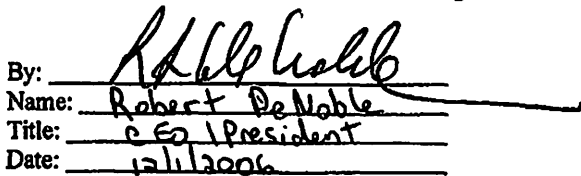 By:
Name: Robert DeNoble
Title: CEO / President
Date: 12/1/2006